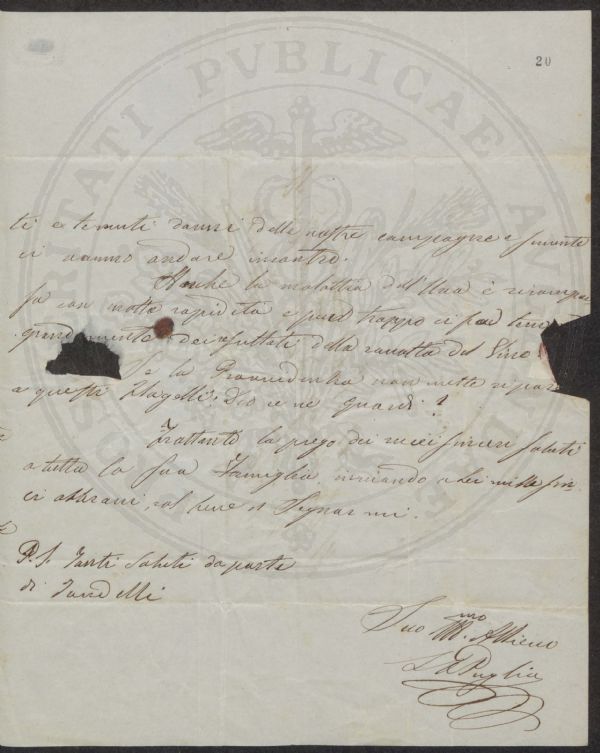 20
ti e temuti danni delle nostre campagne e
ci vanno andare incontro.
Anche la malattia dell'Uva è
fa con molta rapidità e pur troppo ci può
grandemente dei risultati della raccolta del Vino
Se la Provvidenza non mette ripar
a questi flagelli: Dio ce ne guardi!
Frattanto la prego dei miei sinceri saluti
a tutta la sua Famiglia, inviando a Lei mille sin
ci abbracci, col bene
P.S. Tanti saluti da parte
di
Suo Affmo
L A Puglia
PVBLICAE